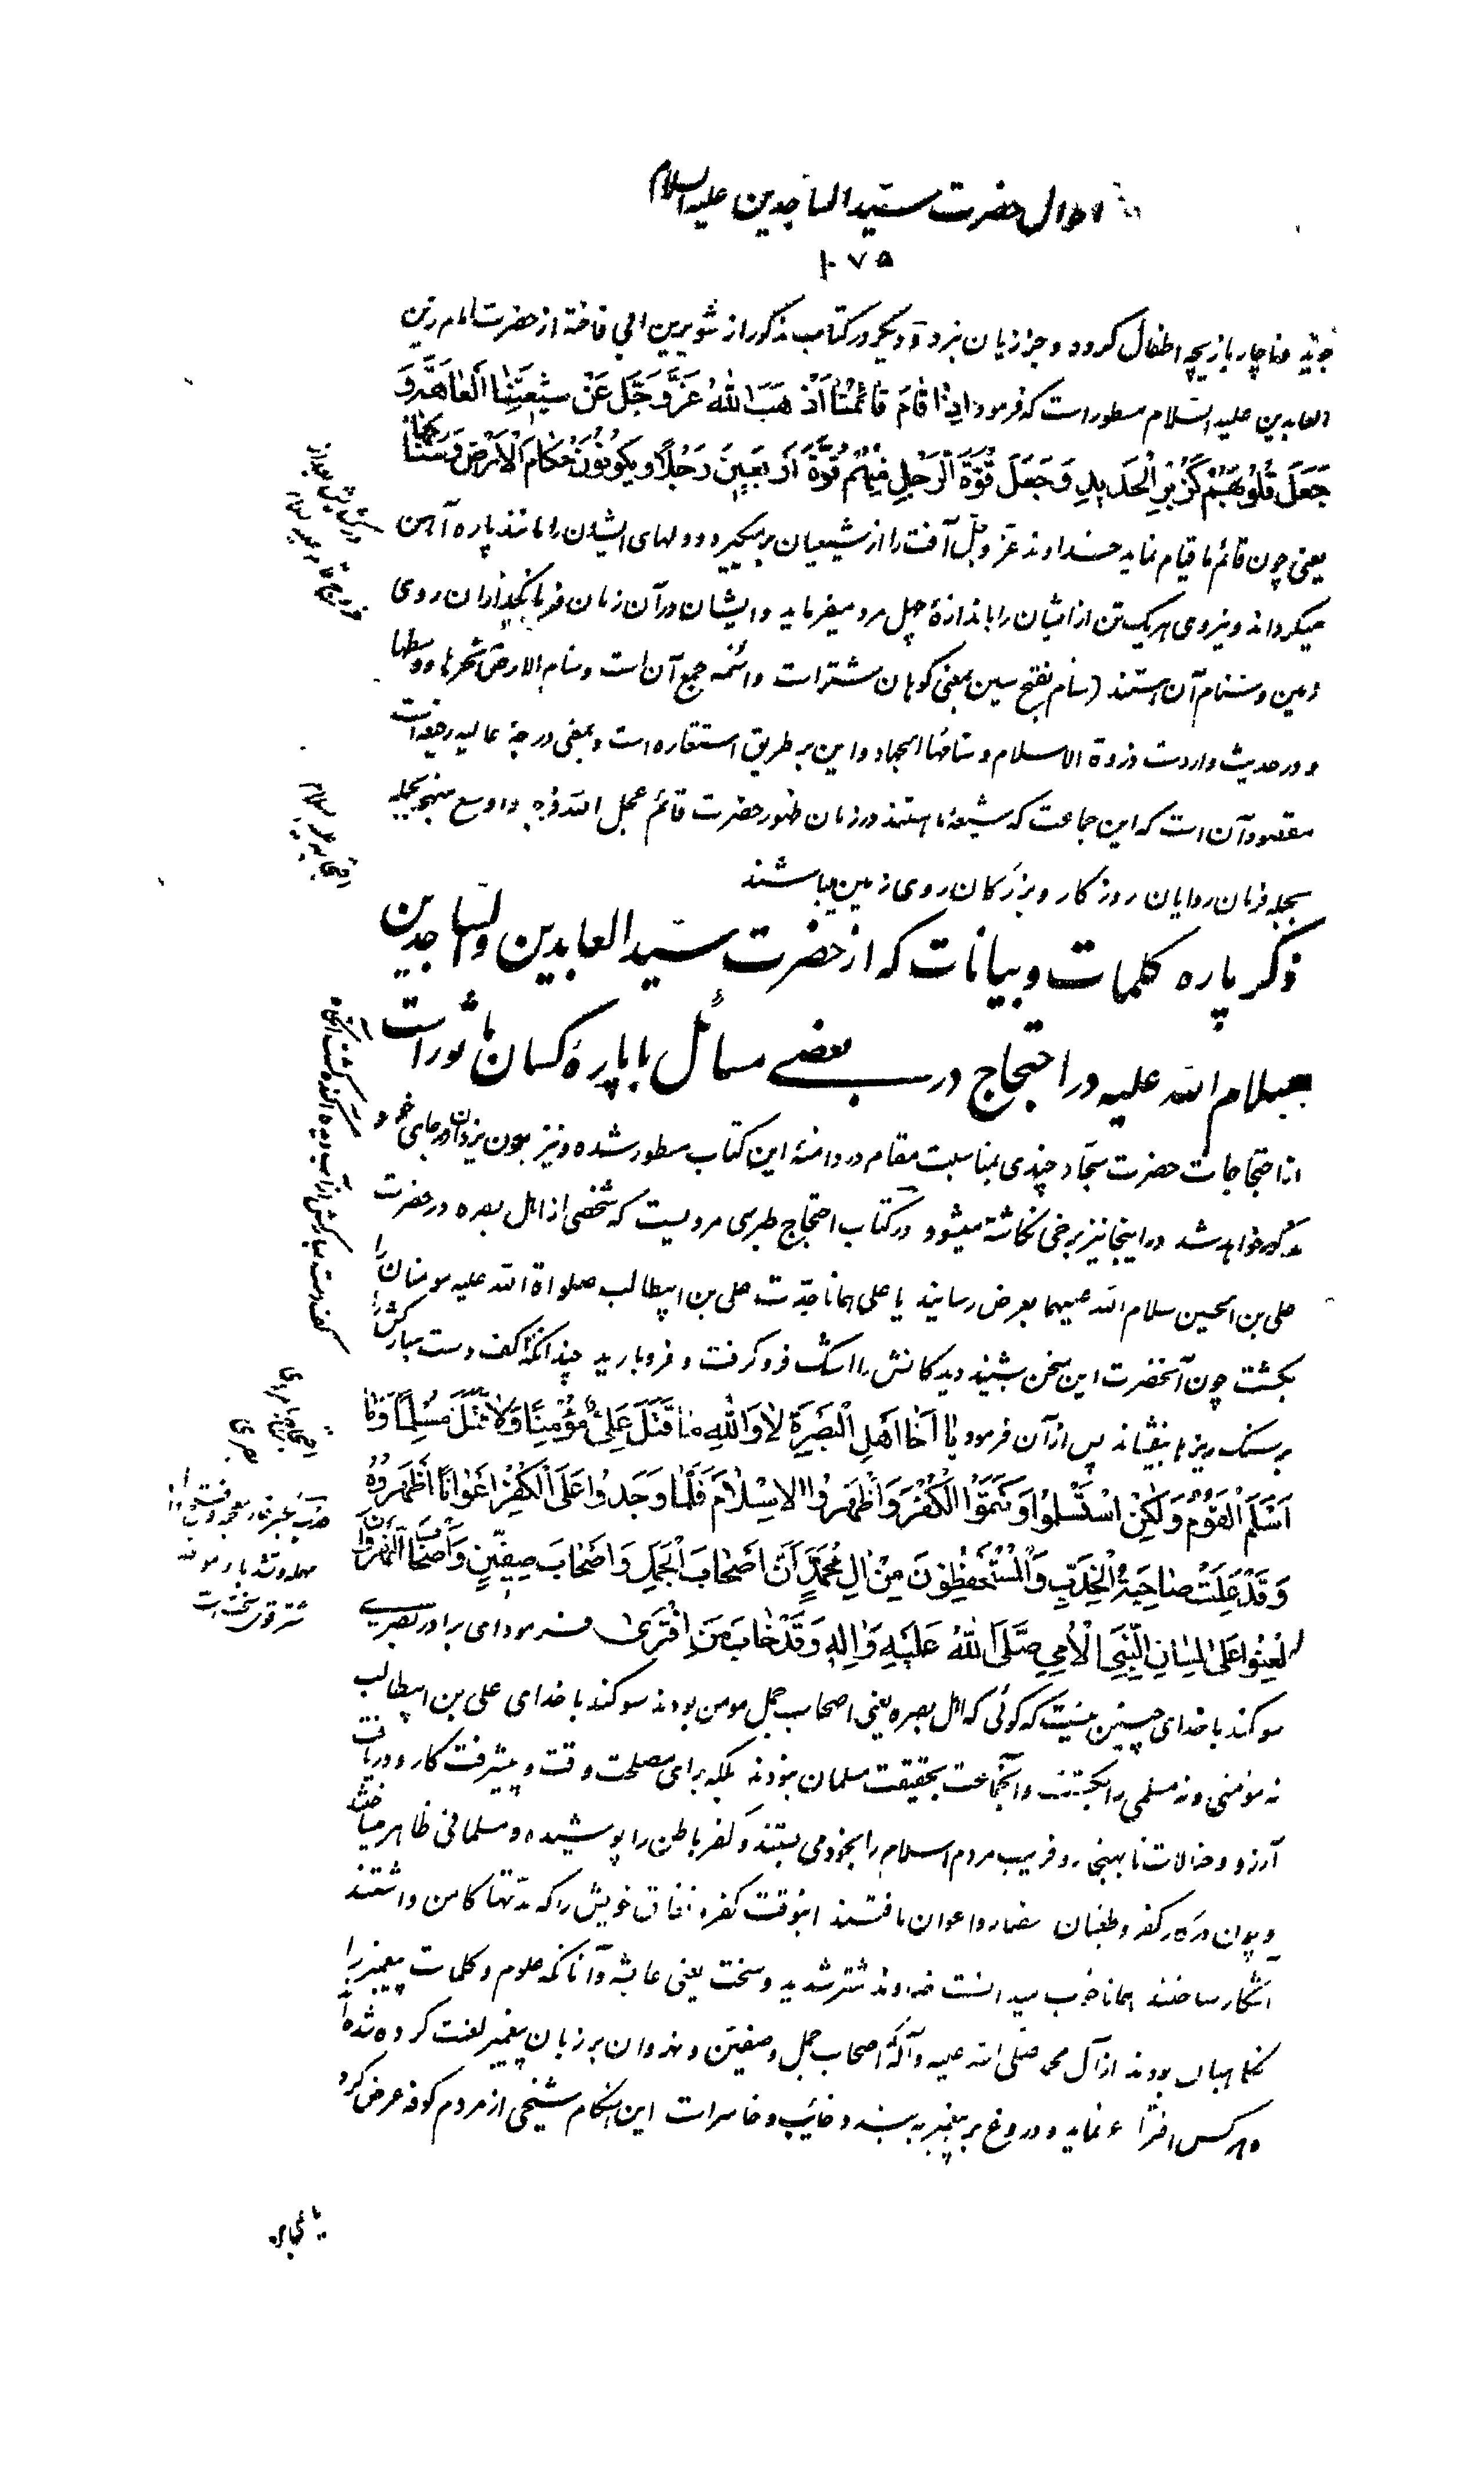 احوال حضرت سید الساجدین علیه السلام
۱۰۷۵
جوید مناچار بازیچه اطفال گردد و جز زیان نبرد و دیگر در کتاب مذکور از ثویر بن ابی فاخته از حضرت امام زین
العابدین علیه السلام مسطور است که فرمود اِذٰا قٰامَ قٰائِمُنٰا اَذْهَبَ اللّٰهُ عَزَّ وَجَلَّ عَنْ شیعَتِنَا الْعٰاهَةَ وَ
جَعَلَ قُلُوبَهُمْ کَزُبَرِ الْحَدیدِ وَجَعَلَ قُوَّةَ الرَّجُلِ مِنْهُمْ قُوَّةَ اَرْبَعینَ رَجُلًا وَیَکُونُونَ حُکّٰامَ الْاَرْضِ وَسَنٰامَهٰا
یعنی چون قائم ما قیام نماید خداوند عز وجل آفت را از شیعیان برمیگیرد و دلهای ایشان را مانند پاره آهن
میگرداند و نیروی هر یک تن از ایشان را باندازهٔ چهل مرد میفرماید و ایشان در آن زمان فرمانگذاران روی
زمین و سنام آن هستند (سنام بفتح سین بمعنی کوهان شتر است و اسنمه جمع آن است و سنام الارض نحرها و وسطها
و در حدیث وارد است ذروة الاسلام و سنامها الجهاد و این بر طریق استعاره است و بمعنی درجهٔ عالیه رفیعه است
مقصود آن است که این جماعت که شیعهٔ ما هستند در زمان ظهور حضرت قائم عجل الله فرجه و اوسع منهجه بجمله
بجمله فرمان روایان روزگار و بزرگان روی زمین میباشند
ذکر پاره کلمات و بیانات که از حضرت سید العابدین و الساجدین
سلام الله علیه در احتجاج در بعضی مسائل با پارهٔ کسان مأثور است
از احتجاجات حضرت سجاد چندی بمناسبت مقام در دامنهٔ این کتاب مسطور شده و نیز بعون یزدان در جای خود
مذکور خواهد شد در اینجا نیز برخی نگاشته میشود در کتاب احتجاج طبرسی مرویست که شخصی از اهل بصره در حضرت
علی بن الحسین سلام الله علیهما بعرض رسانید یا علی همانا جدت علی بن ابیطالب صلواة الله علیه مومنان را
بکشت چون آنحضرت این سخن بشنید دیدگانش را اشک فرو گرفت و فرو بارید چندانکه کف دست مبارکش را
بر سنگ ریزها بیفشاند پس از آن فرمود یٰا اَخٰا اَهْلِ الْبَصْرَةِ لٰا وَاللّٰهِ مٰا قَتَلَ عَلِیٌّ مُؤْمِنًا وَلٰا قَتَلَ مُسْلِمًا وَمٰا
اَسْلَمَ الْقَوْمُ وَلٰکِنْ اسْتَسْلَمُوا وَکَتَمُوا الْکُفْرَ وَاَظْهَرُوا الْاِسْلٰامَ فَلَمّٰا وَجَدُوا عَلَی الْکُفْرِ اَعْوٰانًا اَظْهَرُوهُ
وَقَدْ عَلِمَتْ صٰاحِبَةُ الْخِدَبِّ وَالْمُسْتَحْفِظُونَ مِنْ اٰلِ مُحَمَّدٍ اَنَّ اَصْحٰابَ الْجَمَلِ وَاَصْحٰابَ صِفّینَ وَاَصْحٰابَ النَّهْرَوٰانِ
لُعِنُوا عَلٰی لِسٰانِ النَّبِیِّ الْاُمِّیِّ صَلَّی اللّٰهُ عَلَیْهِ وَاٰلِهِ وَقَدْ خٰابَ مَنِ افْتَرٰی فرمود ای برادر بصری
سوگند با خدای چنین نیست که گوئی که اهل بصره یعنی اصحاب جمل مومن بودند سوگند با خدای علی بن ابیطالب
نه مؤمنی و نه مسلمی را بکشت و آنجماعت بحقیقت مسلمان نبودند بلکه برای مصلحت وقت و پیشرفت کار و دریافت
آرزو و خیالات نابهنجار و فریب مردم اسلام را بخود می بستند و کفر باطن را پوشیده و مسلمانی ظاهر میساختند
و چون در کفر و طغیان انصار و اعوان یافتند اینوقت کفر و نفاق خویش را که مدتها کامن داشتند
آشکار ساختند همانا خوب میدانست خداوند شتر شدید و سخت یعنی عایشه و آنانکه علوم و کلمات پیغمبر را
نگاهبان بودند از آل محمد صلی الله علیه وآله که اصحاب جمل و صفین و نهروان بر زبان پیغمبر لعنت کرده شده‌اند
و هر کس افتراء نماید و دروغ بر پیغمبر به بندد خائب و خاسر است این هنگام شیخی از مردم کوفه عرض کرد